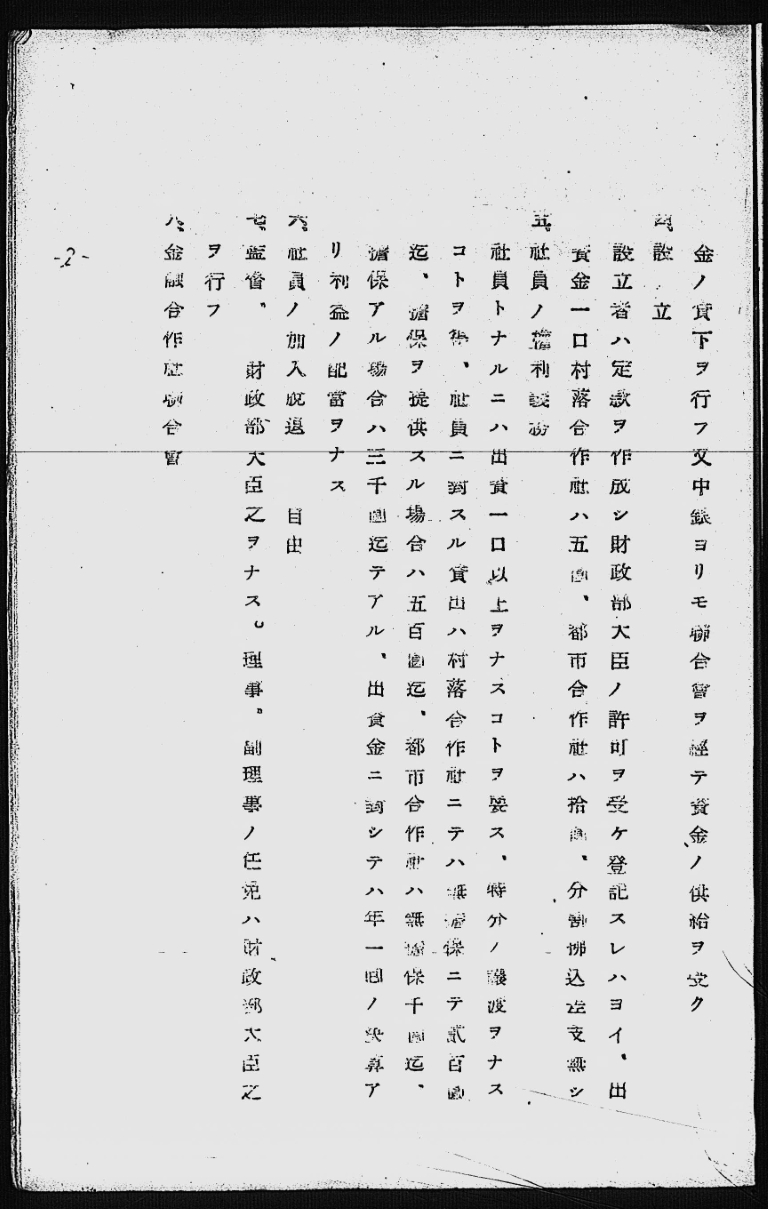 金ノ貸下ヲ行フ又中銀ヨリモ聯合會ヲ經テ資金ノ供給ヲ受ク
四、設　立
設立者ハ定款ヲ作成シ財政部大臣ノ許可ヲ受ケ登記スレハヨイ、出
資金一口村落合作社ハ五圓、都市合作社ハ拾圓、分割拂込差支無シ
五、社員ノ權利義務
社員トナルニハ出資一口以上ヲナスコトヲ要ス、特分ノ讓渡ヲナス
コトヲ得、社員ニ對スル貸出ハ村落合作社ニテハ無擔保ニテ貳百圓
迄、擔保ヲ提供スル場合ハ五百圓迄、都市合作社ハ無擔保千圓迄、
擔保アル場合ハ三千圓迄テアル、出資金ニ對シテハ年一回ノ決算ア
リ利益ノ配當ヲナス
六、社員ノ加入脱退　自由
七、監督、　財政部大臣之ヲナス。理事。副理事ノ任免ハ財政部大臣之
ヲ行フ
八、金融合作社聯合會
-2-